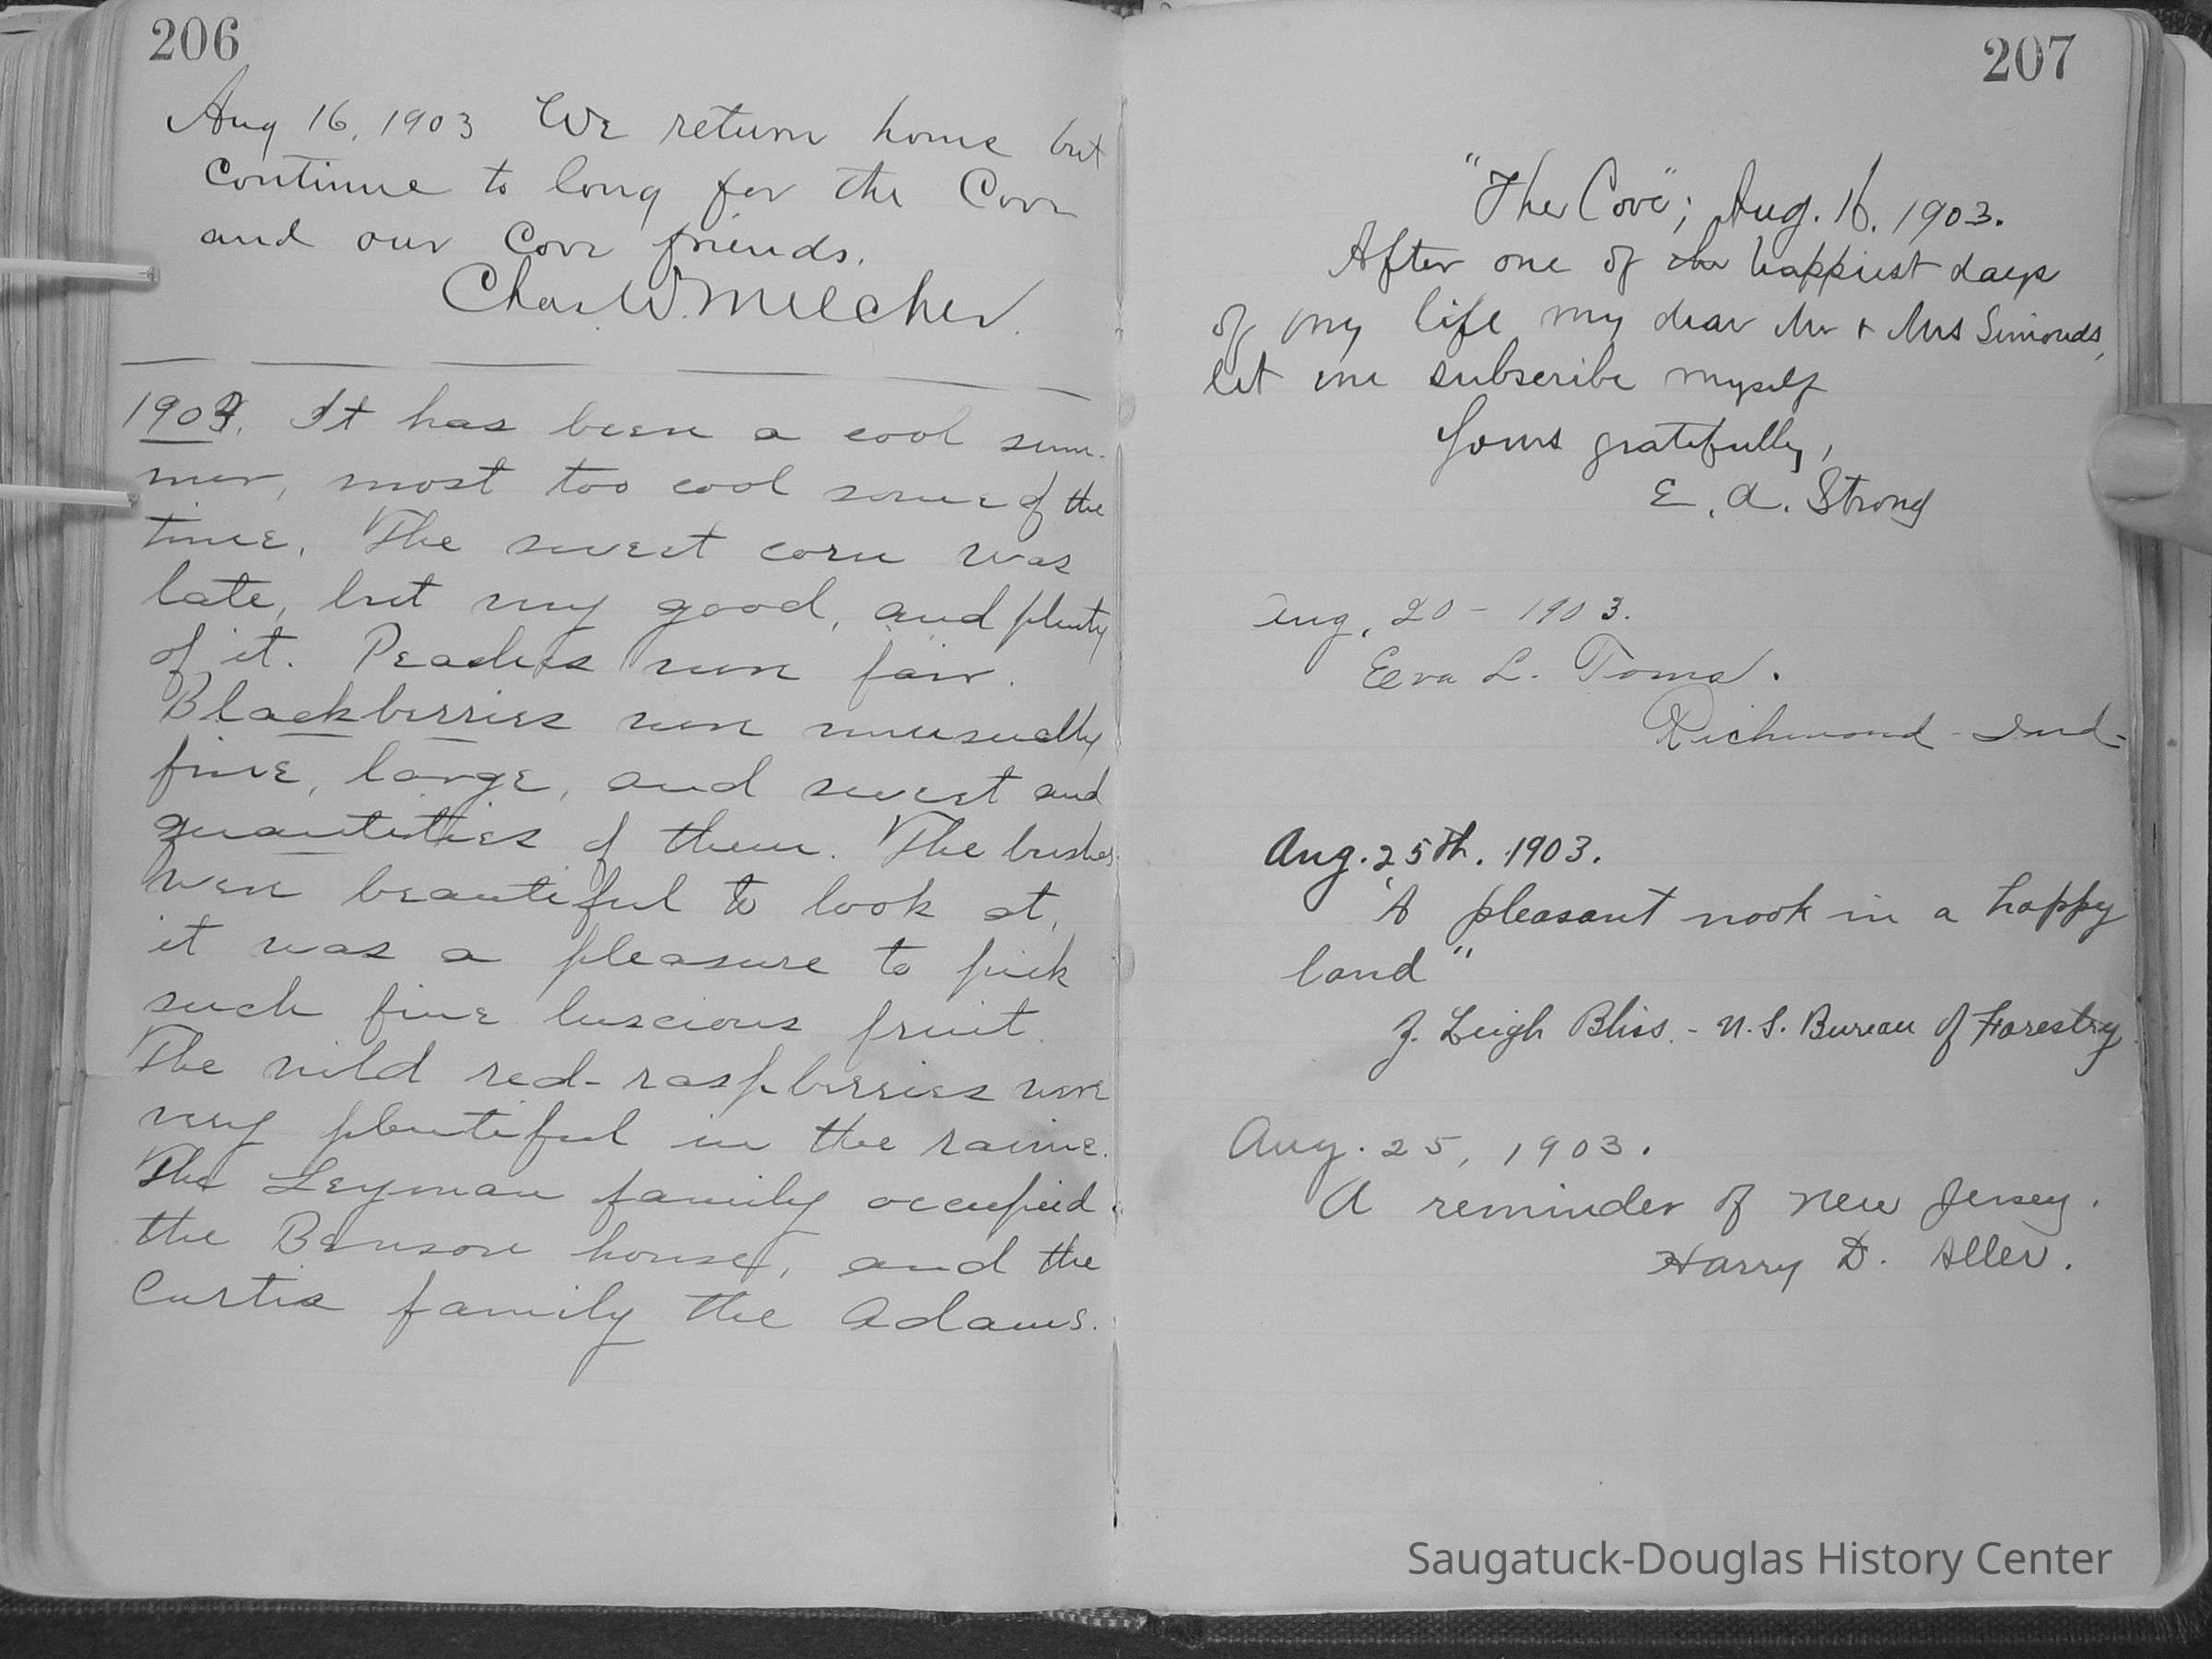 206
Aug 16, 1903 We return home but
continue to long for the Cove
and our Cove friends.
Chas. W. Melcher.
1903. It has been a cool sum-
mer, most too cool some of the
time. The sweet corn was
late, but very good, and plenty
of it. Peaches were fair.
Blackberries were unusually
fine, large, and sweet and
quantities of them. The bushes
were beautiful to look at,
it was a pleasure to pick
such fine luscious fruit.
The wild red-raspberries were
very plentiful in the ravine.
The Leyman family occupied
the Benson house, and the
Curtis family the Adams.
207
"The Cove"; Aug. 16. 1903.
After one of the happiest days
of my life my dear Mr + Mrs Simonds,
let me subscribe myself
Yours gratefully,
E. A. Strong
Aug. 20 - 1903.
Eva L. Toms.
Richmond - Ind -
Aug. 25th. 1903.
"A pleasant nook in a happy
land"
Leigh Bliss. - U.S. Bureau of Forestry
Aug. 25, 1903.
A reminder of New Jersey.
Harry D. Aller.
Saugatuck-Douglas History Center